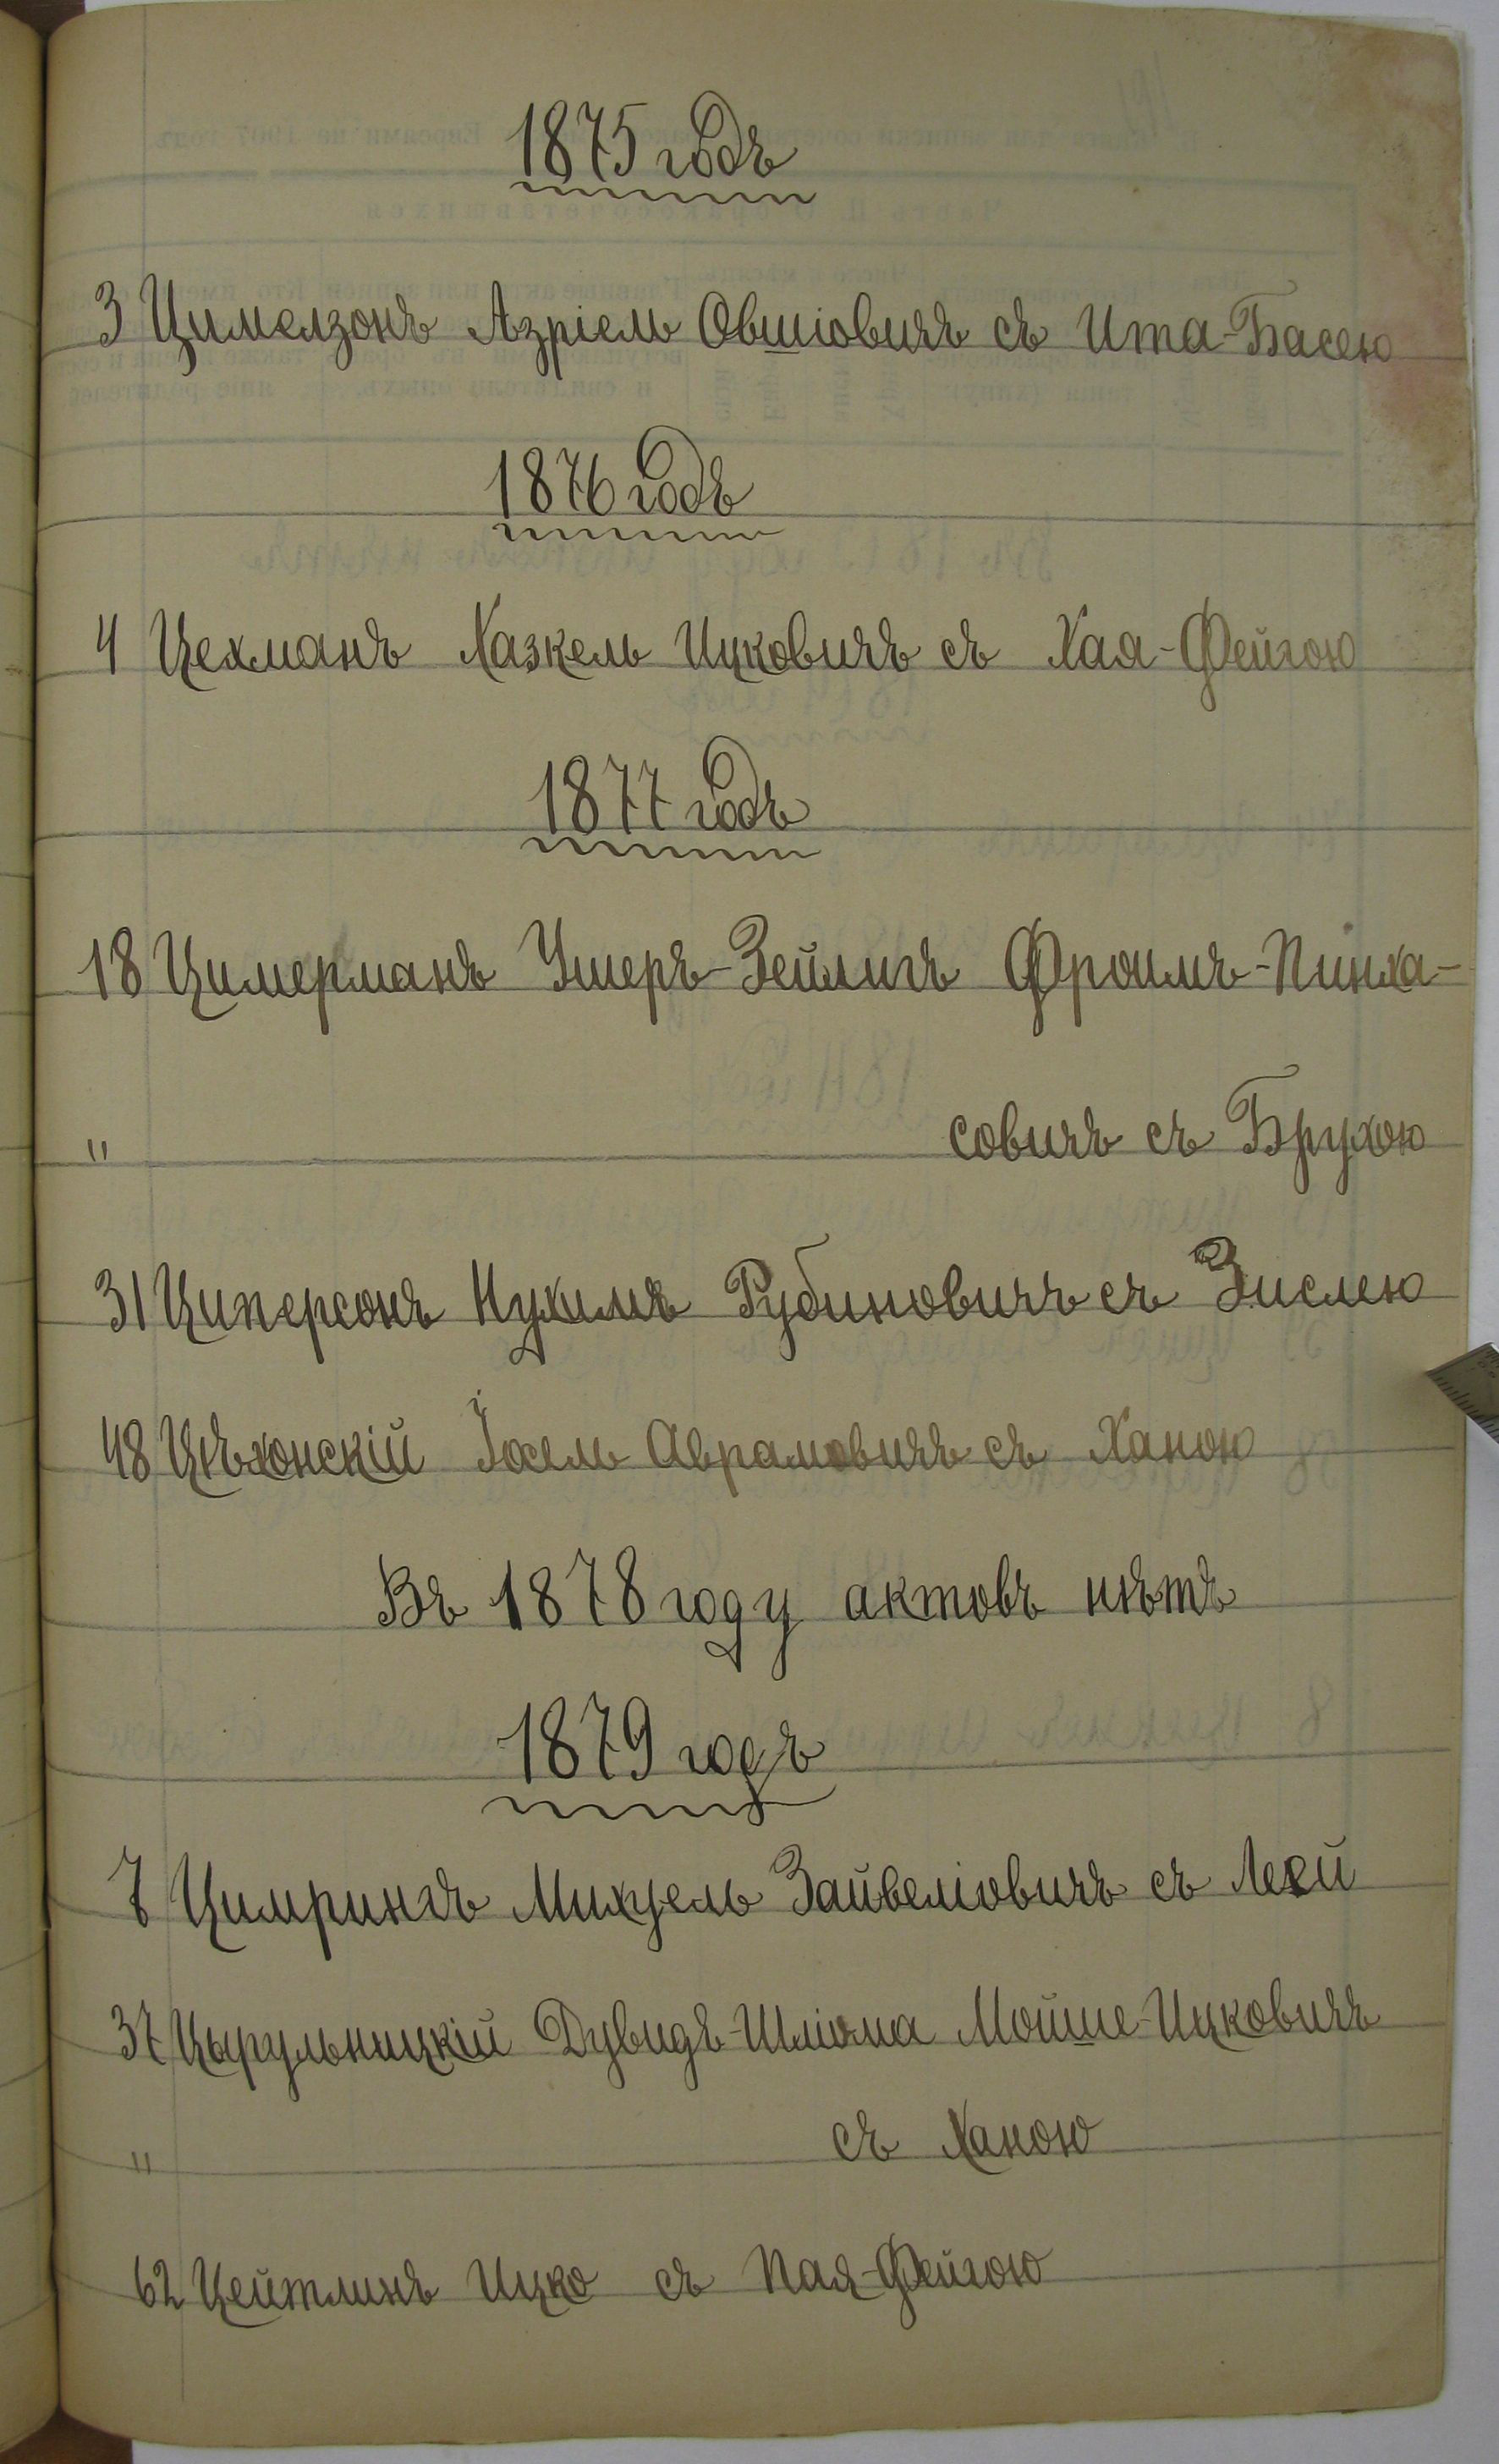 1875 годъ
3 Цимелзонъ Азріель Овшіовичъ съ Ита-Басею
1876 годъ
4 Цехманъ Хазкель Ицковичъ съ Хая-Фейгою
1877 годъ
18 Цимерманъ Ушеръ-Зейлигъ Фроимъ-Пинха-
" совичъ съ Брухою
31 Циперсонъ Нухимъ Рубиновичъ съ Зислею
48 Цѣхонскій Іосель Аврамовичъ съ Ханою
Въ 1878 году актовъ нѣтъ
1879 годъ
7 Цимрингъ Михцель Зайвеліовичъ съ Леей
37 Цырульницкій Дувидъ-Шліома Мойше-Ицковичъ
" съ Ханою
62 Цейтлинъ Ицко съ Пая-Фейгою